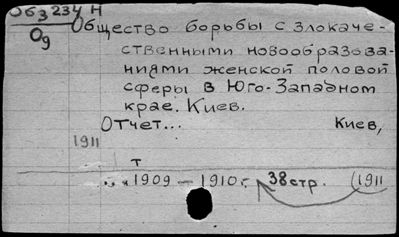 Об3 234 Н
О9
Общество борьбы с злокаче-
ственными новообразова-
ниями женской половой
сферы в Юго-Западном
крае. Киев.
Отчет... Киев,
1911
т
... 1909 — 1910 г. 38 стр. (1911